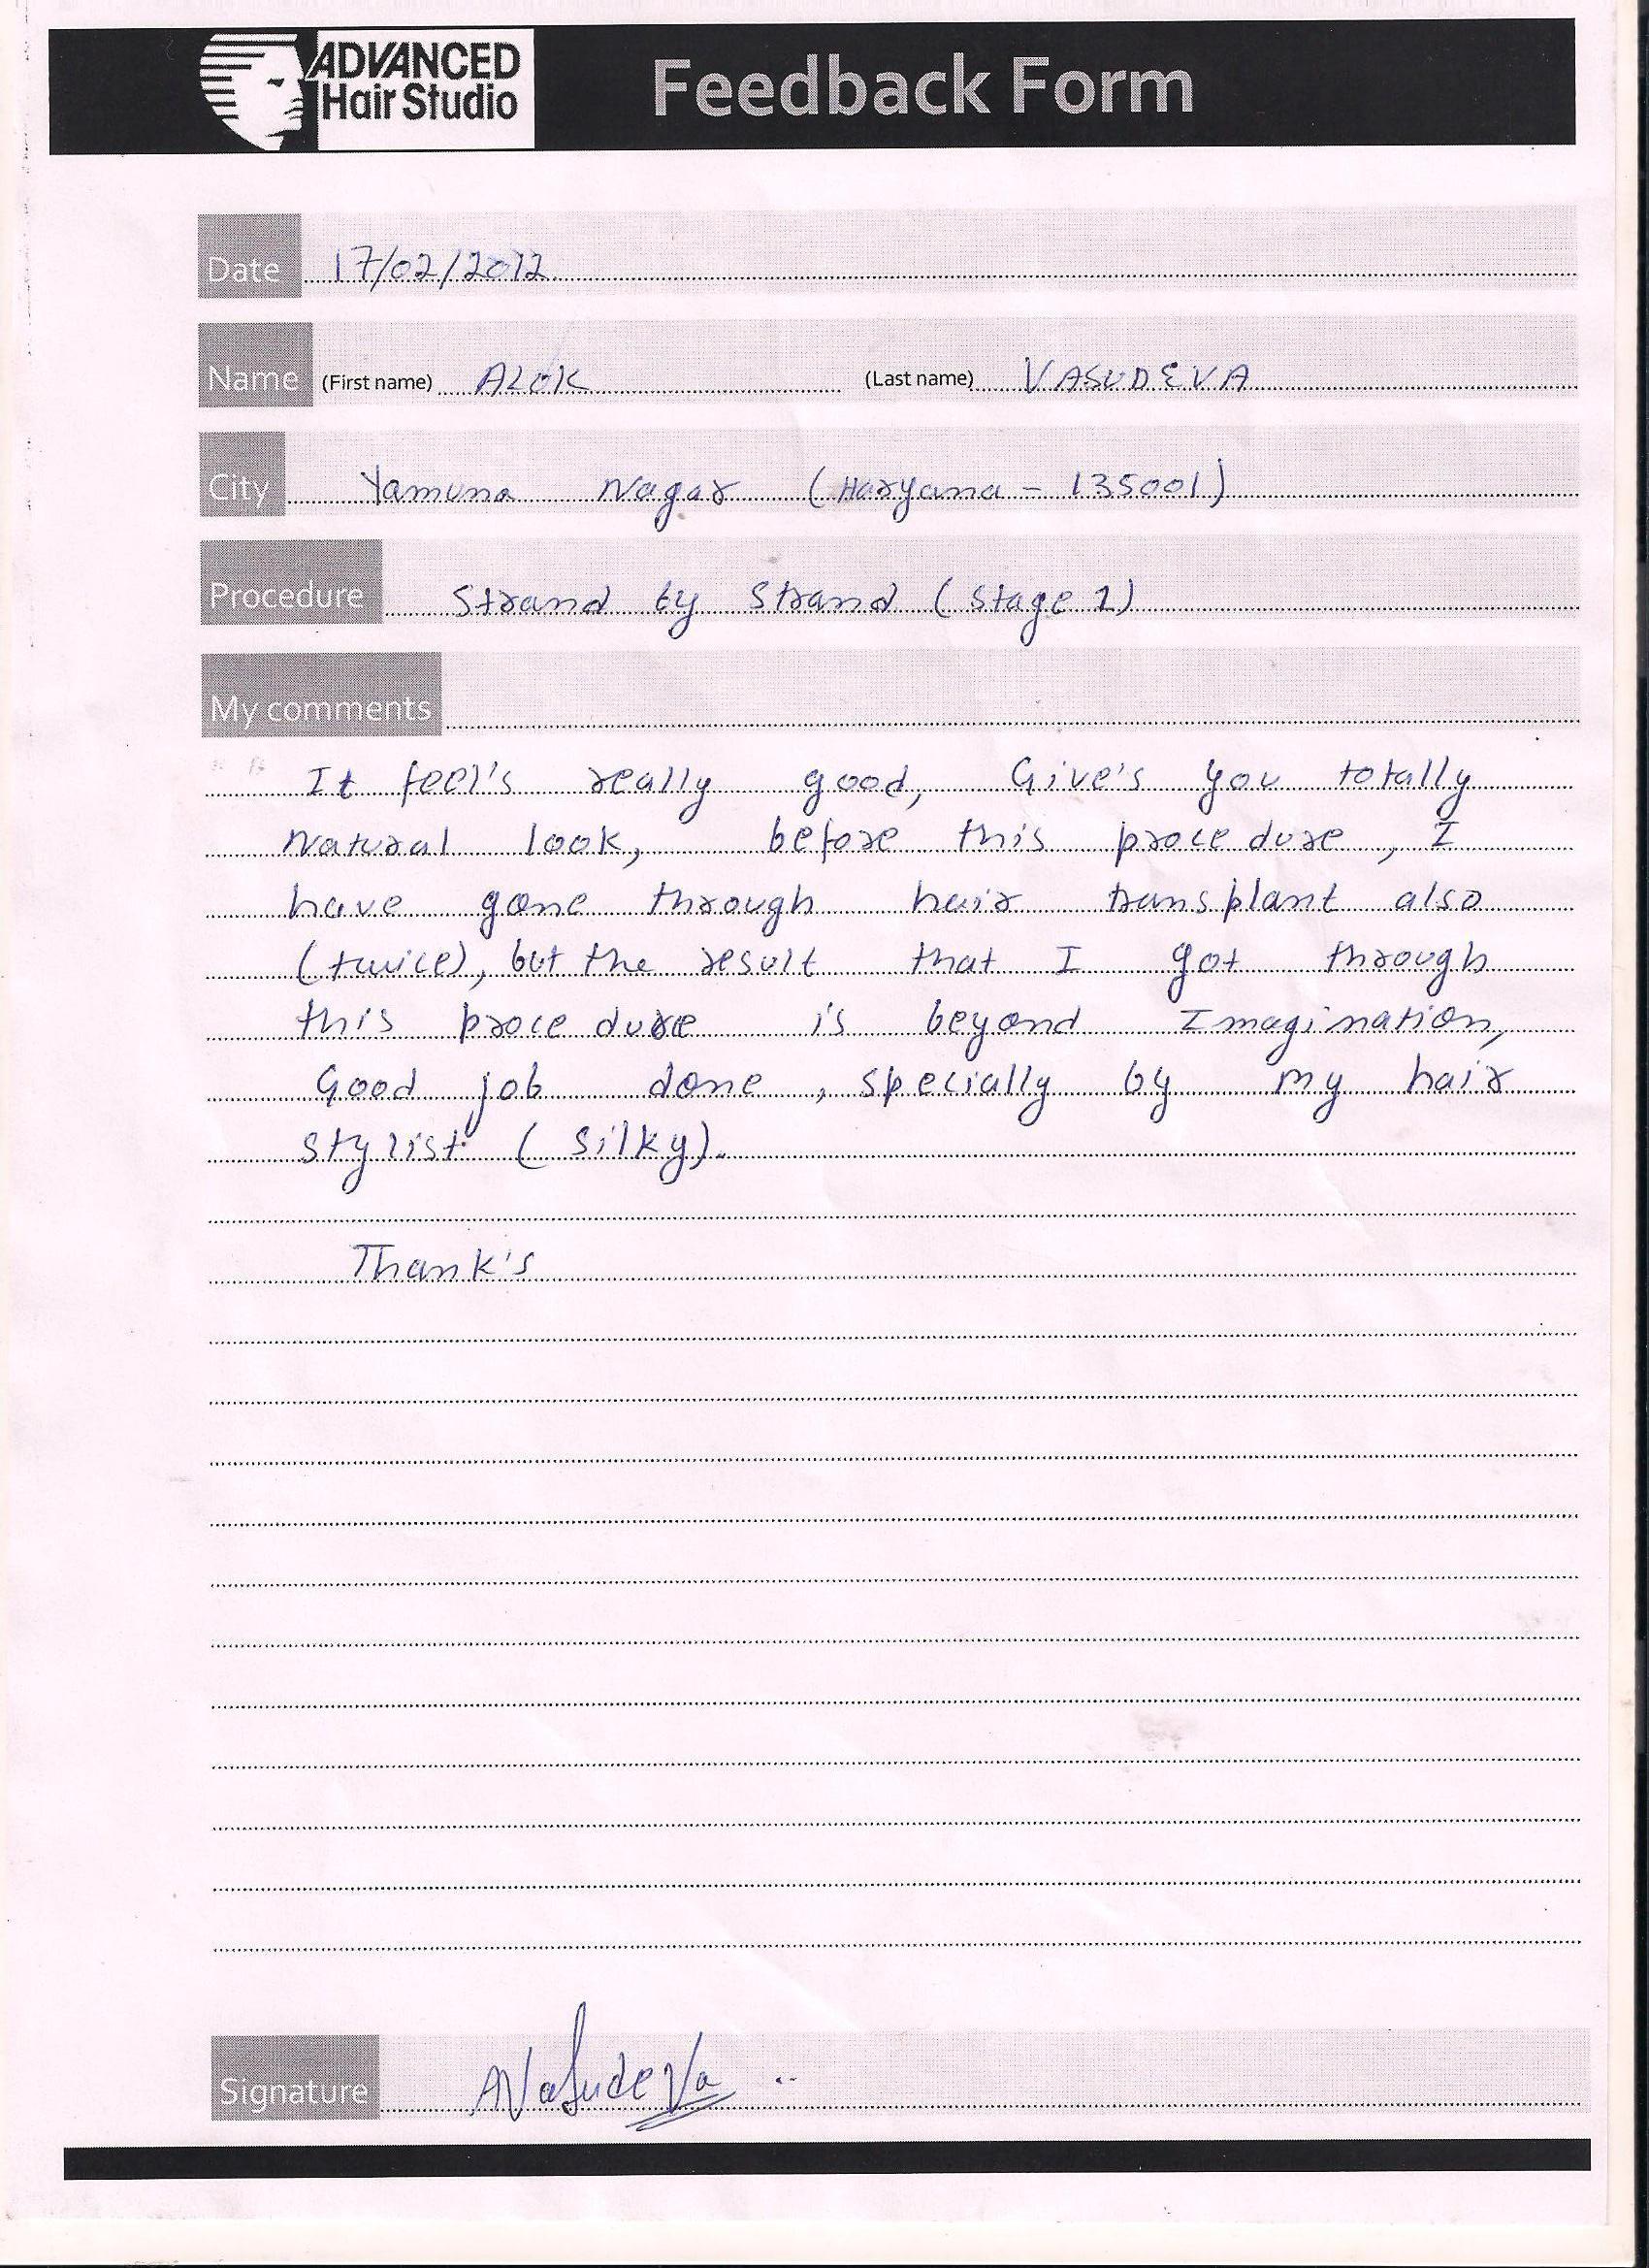 ADVANCED
Hair Studio
Feedback Form
Date 17/02/2012
Name (First name) ALOK (Last name) VASUDEVA
City Yamuna Nagar (Haryana - 135001)
Procedure Strand by Strand (Stage 1)
My comments
It feel's really good, Give's you totally
Natural look, before this procedure, I
have gone through hair transplant also
(twice), but the result that I got through
this procedure is beyond Imagination,
Good job done, specially by my hair
stylist (Silky).
Thank's
Signature AVasudeVa